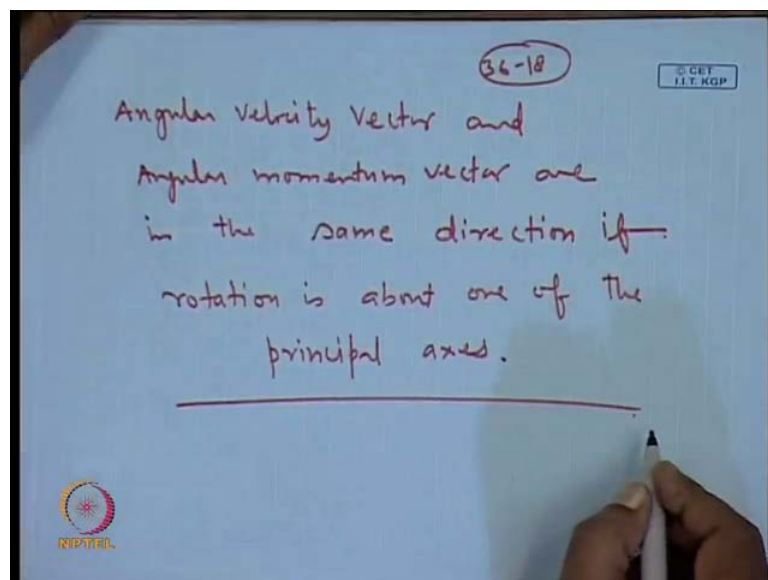 36-18
© CET
I.I.T. KGP
Angular velocity vector and
Angular momentum vector are
in the same direction if
rotation is about one of the
principal axes.
NPTEL